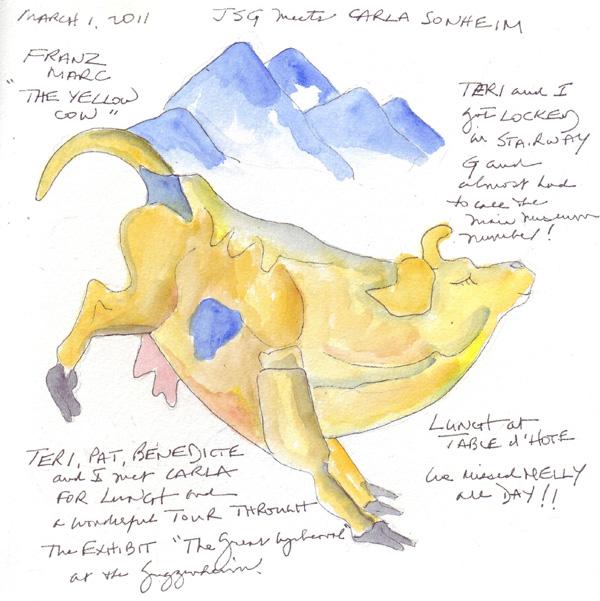 MARCH 1, 2011
JSG meets CARLA SONHEIM
FRANZ
MARC
"THE YELLOW
COW"
TERI and I
got LOCKED
in STAIRWAY
G and
almost had
to call the
main museum
number!
TERI, PAT, BÉNEDICTE
and I met CARLA
FOR LUNCH and
a wonderful TOUR THROUGH
The EXHIBIT "The Great Upheaval"
at the Guggenheim.
LUNCH at
TABLE d'HOTE
We missed MELLY
all DAY!!